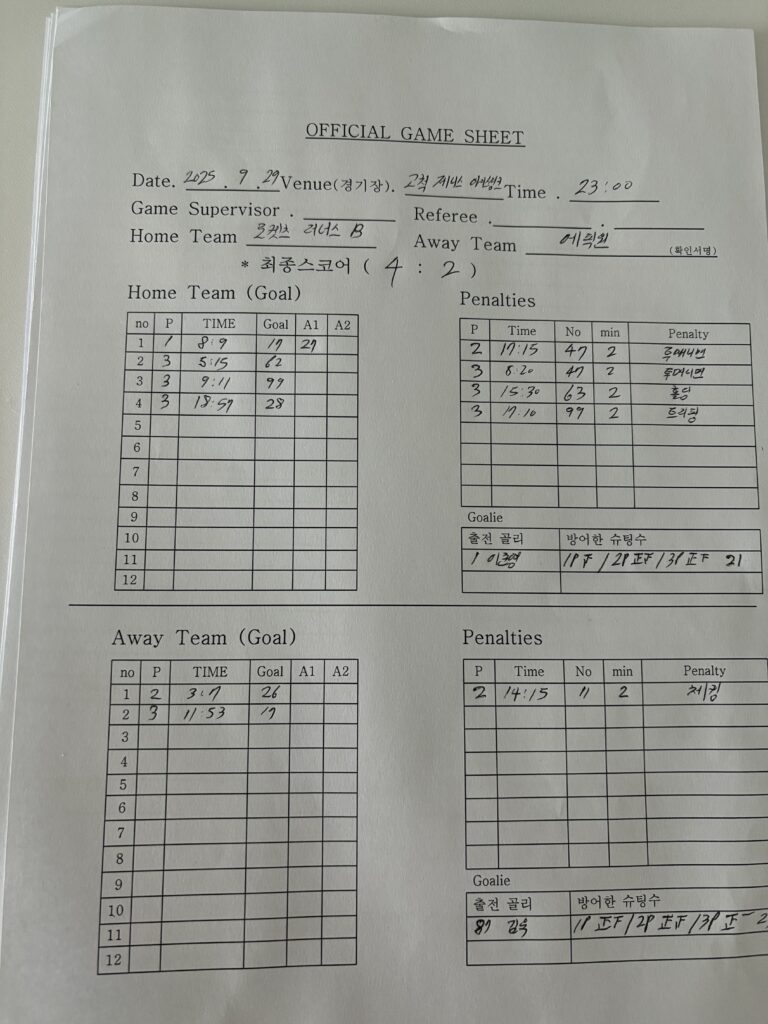 OFFICIAL GAME SHEET
Date. 2025 . 9 . 29 Venue(경기장). 고척 제니스 아이스링크 Time . 23:00
Game Supervisor . Referee . .
Home Team 로켓츠 러너스 B Away Team 에픽원 (확인서명)
* 최종스코어 ( 4 : 2 )
Home Team (Goal)
no P TIME Goal A1 A2
1 1 8:9 17 27
2 3 5:15 62
3 3 9:11 99
4 3 18:57 28
5
6
7
8
9
10
11
12
Penalties
P Time No min Penalty
2 17:15 47 2
3 8:20 47 2
3 15:30 63 2 홀딩
3 17:10 97 2 트리핑
Goalie
출전 골리 방어한 슈팅수
1 1P 2P 正 3P 正 21
Away Team (Goal)
no P TIME Goal A1 A2
1 2 3:7 26
2 3 11:53 17
3
4
5
6
7
8
9
10
11
12
Penalties
P Time No min Penalty
2 14:15 11 2 체킹
Goalie
출전 골리 방어한 슈팅수
87 김욱 1P 正 / 2P 正 / 3P 正